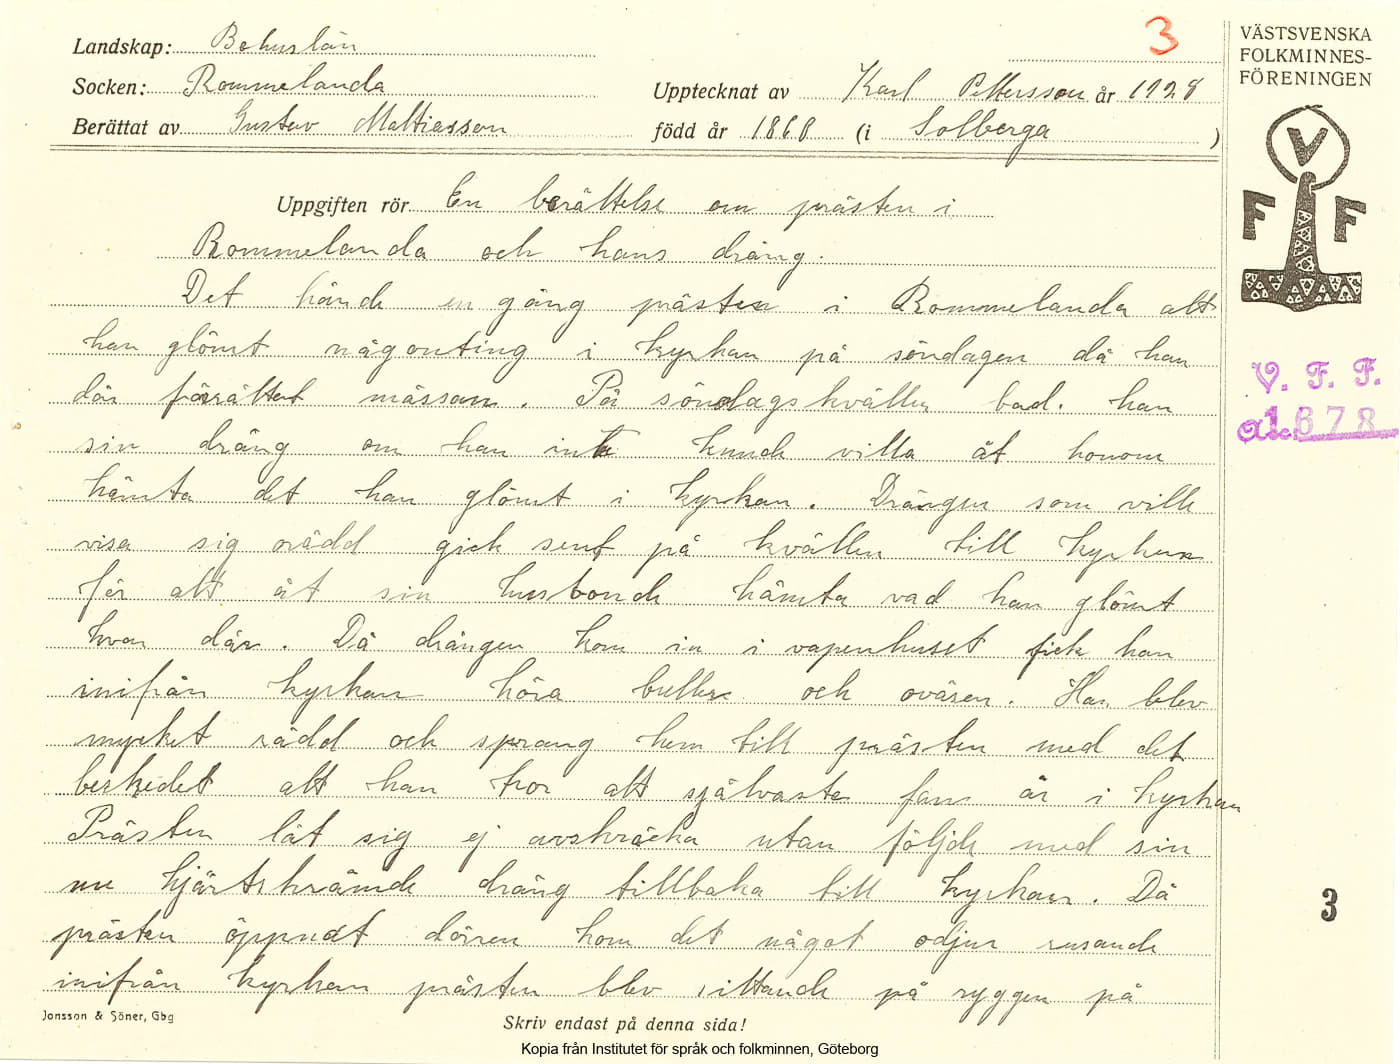 Landskap: Bohuslän
3
Socken: Rommelanda
Upptecknat av Karl Pettersson år 1928
Berättat av Gustav Mattiasson
född år 1868 (i Solberga )
VÄSTSVENSKA
FOLKMINNES-
FÖRENINGEN
V
F F
Uppgiften rör En berättelse om prästen i
Rommelanda och hans dräng.
Det hände en gång prästen i Rommelanda att
han glömt någonting i kyrkan på söndagen då han
där förrättat mässan. På söndagskvällen bad. han
sin dräng om han inte kunde villa åt honom
hämta det han glömt i kyrkan. Drängen som ville
visa sig orädd gick sent på kvällen till kyrkan
för att åt sin husbonde hämta vad han glömt
kvar där. Då drängen kom in i vapenhuset fick han
inifrån kyrkan höra buller och oväsen. Han blev
mycket rädd och sprang hem till prästen med det
beskedet att han tror att självaste fan är i kyrkan
Prästen lät sig ej avskräcka utan följde med sin
nu hjärtskrämde dräng tillbaka till kyrkan. Då
prästen öppnat dörren kom det något odjur rusande
inifrån kyrkan prästen blev sittande på ryggen på
V. F. F.
Acc. 1678
3
Jonsson & Söner, Gbg
Skriv endast på denna sida!
Kopia från Institutet för språk och folkminnen, Göteborg